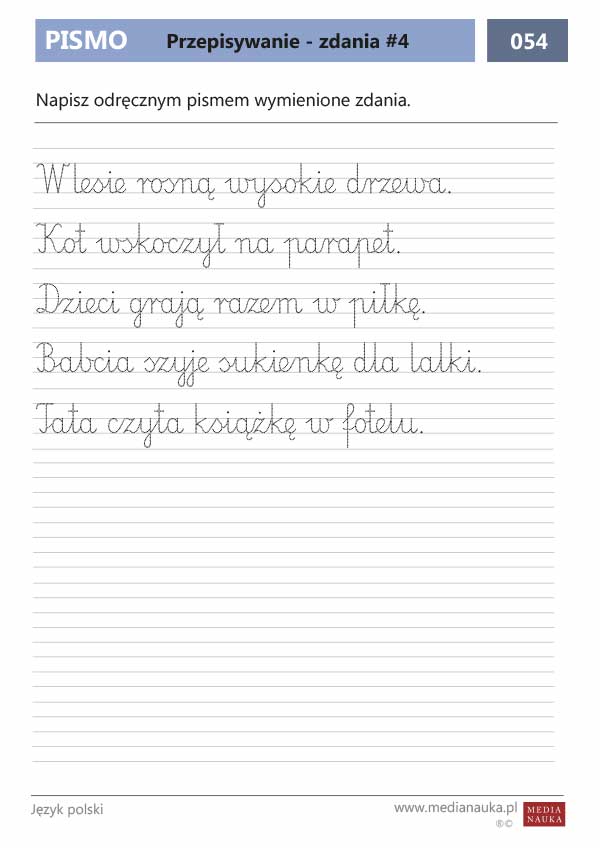 PISMO Przepisywanie - zdania #4 054
Napisz odręcznym pismem wymienione zdania.
W lesie rosną wysokie drzewa.
Kot wskoczył na parapet.
Dzieci grają razem w piłkę.
Babcia szyje sukienkę dla lalki.
Tata czyta książkę w fotelu.
Język polski www.medianauka.pl MEDIA
®© NAUKA